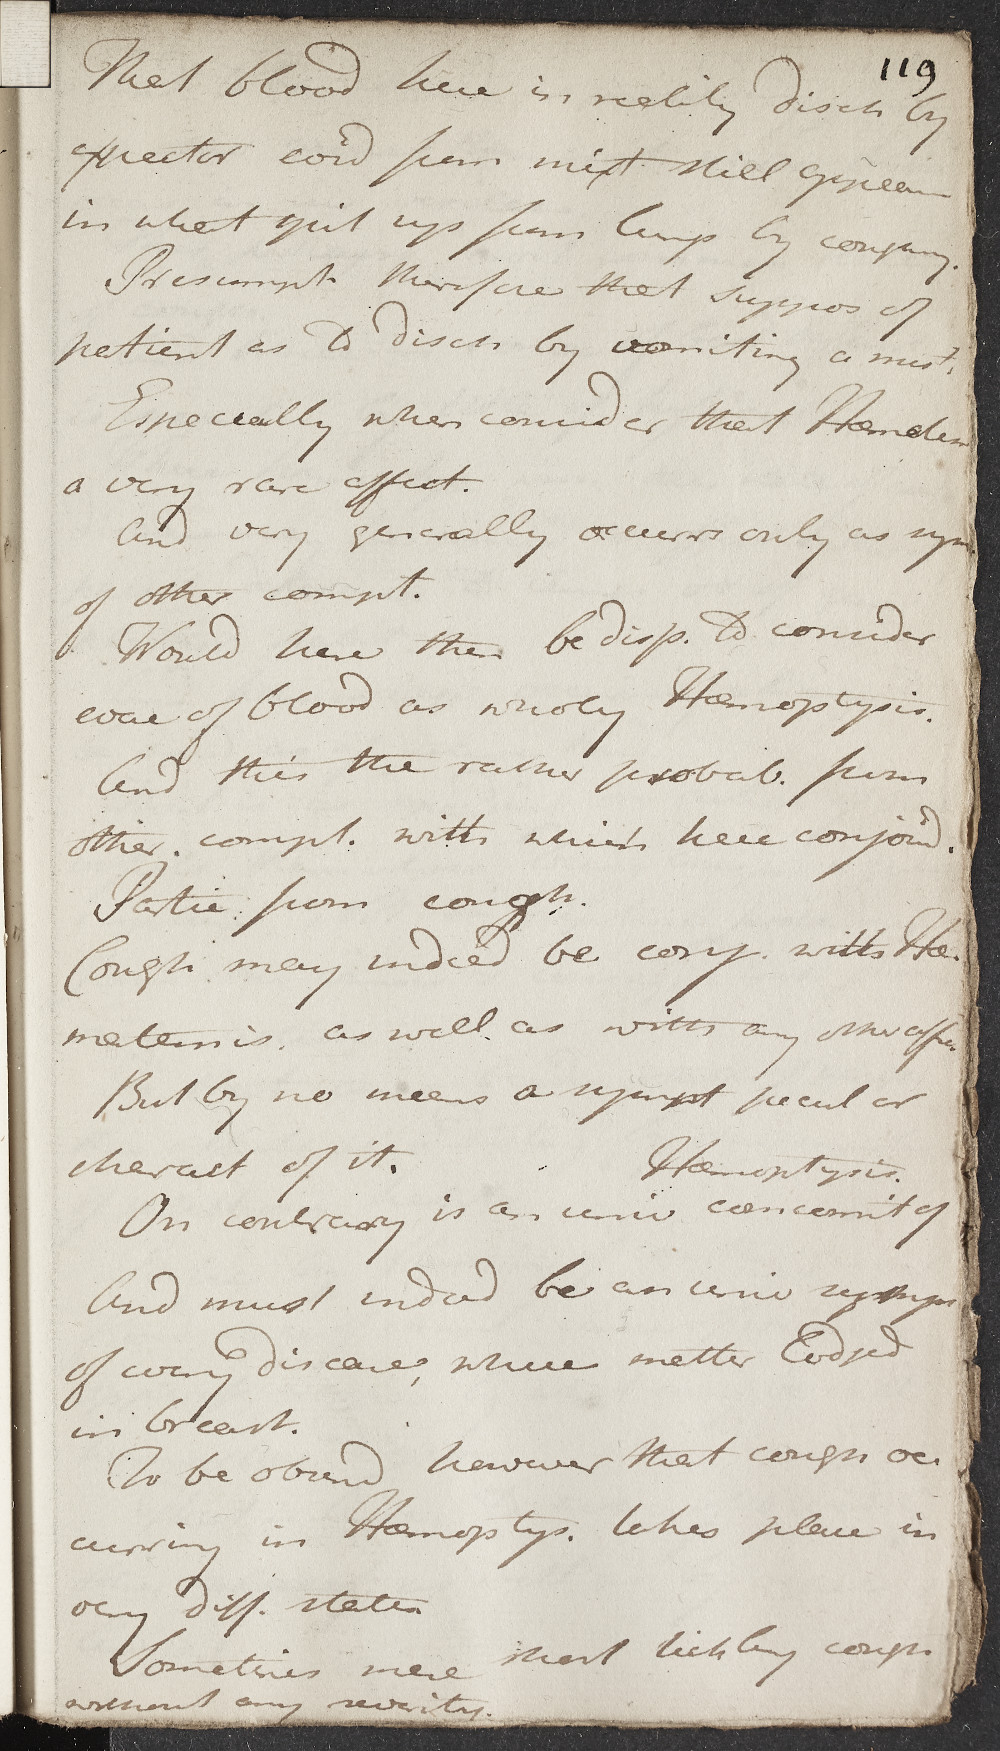 119
That blood here in reality disch by
expector evid from mixt still appear
in what spit up from lungs by coughing.
Presumpt. therefore that suppos of
patient as to disch by vomiting a mist.
Especially when consider that Hæmatem
a very rare affect.
And very generally occurrs only as sym
of other compt.
Would here then be disp. to consider
evac of blood as wholy Hæmoptysis.
And this the rather probab. from
other. compl. with which here conjoin'd.
Partic. from cough.
Cough may indeed be conj. with Hæ-
matemesis. as well as with any other affec
But by no means a sympt pecul or
charact of it. Hæmoptysis.
On contrary is an univ concomit of
And must indeed be an univ symp
of every disease, where matter Lodged
in breast.
To be observd however that cough oc-
curring in Hæmoptys. takes place in
very diff. states
Sometimes mere short tickling cough
without any severity.